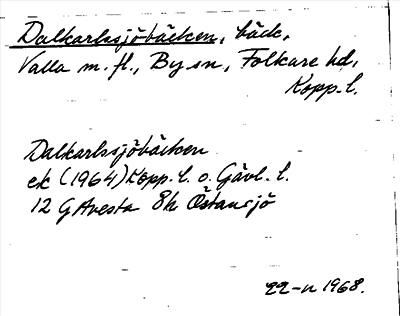 Dalkarlssjöbäcken, bäck,
Valla m. fl., By sn, Folkare hd,
Kopp. l.
Dalkarlssjöbäcken
ek (1964) Kopp. l. o. Gävl. l.
12 G Avesta 8h Östansjö
22-u 1968.